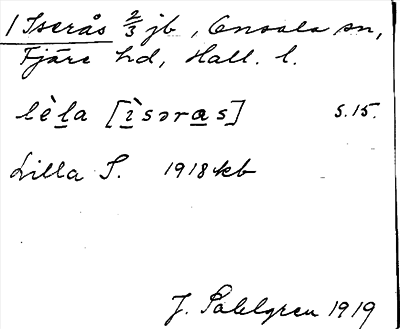 1 Iserås 2/3 jb, Onsala sn,
Fjäre hd, Hall. l.
lèla [ìsəras] s. 15.
Lilla I. 1918 kb
J. Sahlgren 1919